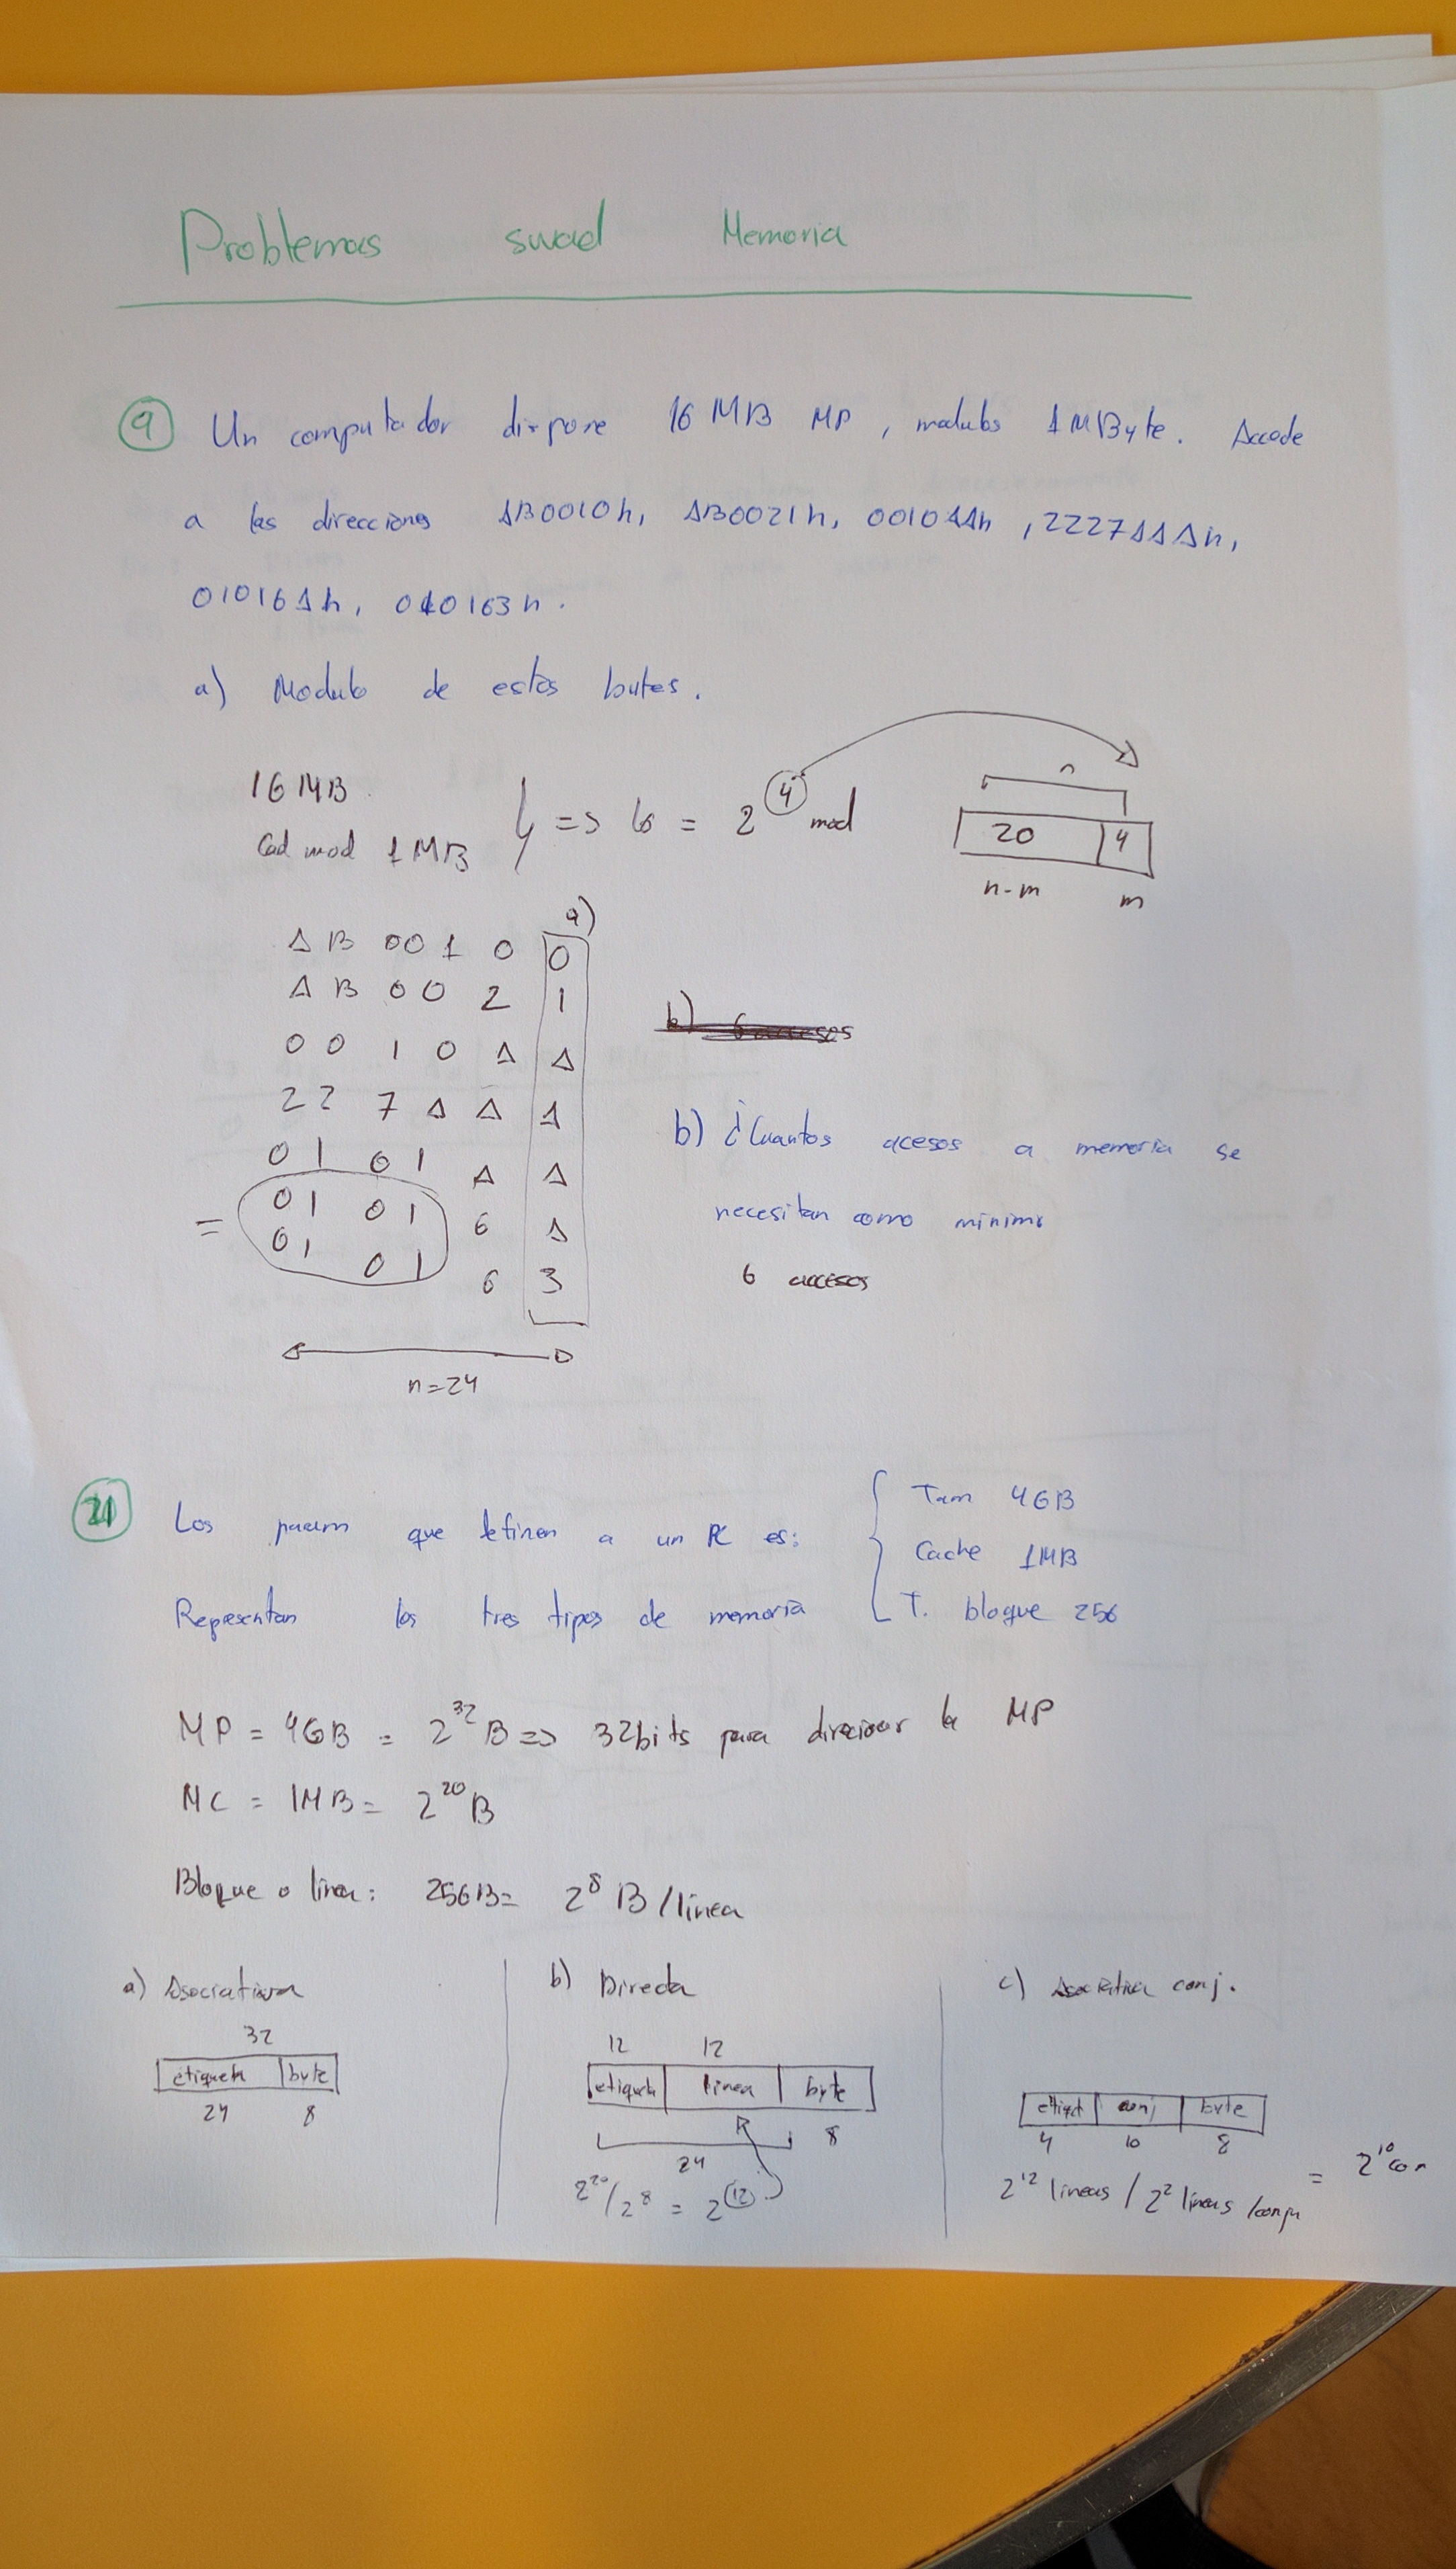 Problemas swad Memoria
9 Un computador dispone 16 MB MP, modulos 1 MByte. Accede
a las direcciones AB0010h, AB0021h, 0010AAh, 2227AAAh,
01016Ah, 010163h.
a) Modulo de estos bytes.
16 MB
Cad mod 1 MB } => 16 = 2^4 mod
n
20 4
n-m m
a)
A B 00 1 0 0
A B 0 0 2 1
0 0 1 0 A A
2 2 7 A A A
0 1 0 1 A A
= 0 1 0 1 6 A
0 1 0 1 6 3
n=24
b) 6 accesos
b) ¿Cuantos acesos a memoria se
necesitan como minimo
6 accesos
21 Los param que definen a un PC es: { Tam 4GB
Cache 1MB
Representan los tres tipos de memoria T. bloque 256
MP = 4GB = 2^32 B => 32bits para direcionar la MP
MC = 1MB = 2^20 B
Bloque o linea: 256B = 2^8 B/linea
a) Asociativa
32
etiqueta byte
24 8
b) Directa
12 12
etiqueta linea byte
24 8
2^20/2^8 = 2^12
c) Asociativa conj.
etiquet conj byte
4 10 8
2^12 lineas / 2^2 lineas/conju = 2^10 con